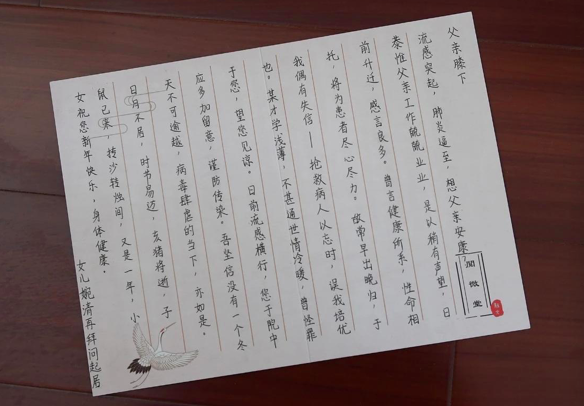 父亲膝下
流感突起，肺炎逼至，想父亲安康？
恭惟父亲工作兢兢业业，是以稍有声望，日
前升迁，感言良多。曾言健康所系，性命相
托，将为患者尽心尽力。故常早出晚归，于
我偶有失信——抢救病人以忘时，误我培优
也。某才学浅薄，不甚通世情冷暖，曾怪罪
于您，望您见谅。日前流感横行，您于院中
应多加留意，谨防传染。吾坐信没有一个冬
天不可逾越，病毒肆虐的当下，亦如是。
日月不居，时节易迈，亥猪将逝，子
鼠已来，转沙转烛间，又是一年，小
女祝您新年快乐，身体健康。
女儿婉清再拜问起居
阅微堂